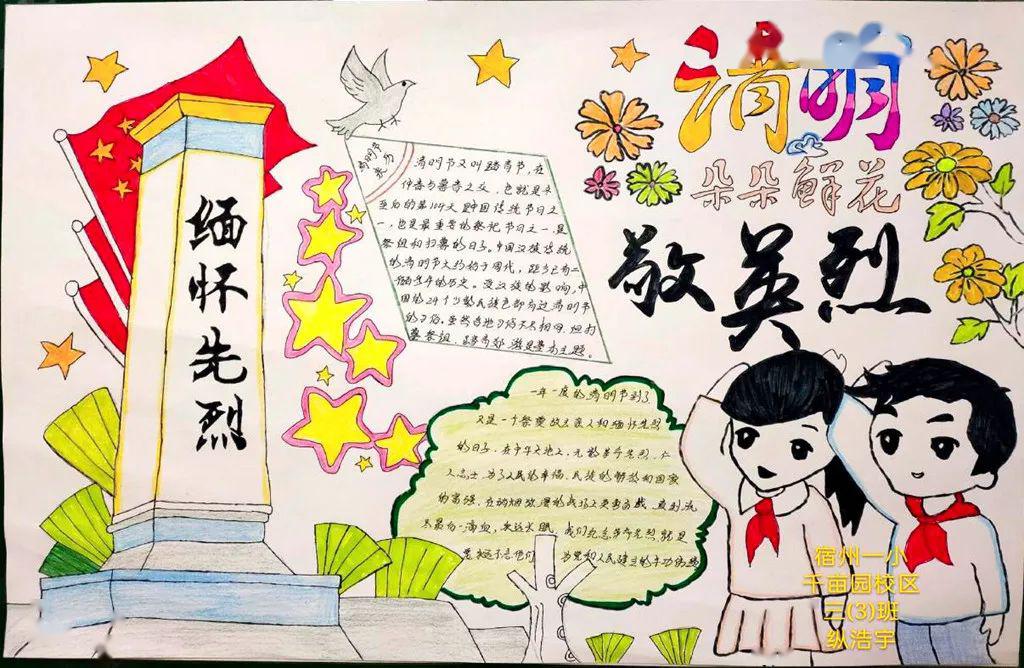 清明
朵朵鲜花
敬英烈
缅怀先烈
清明节
清明节又叫踏青节，在
仲春与暮春之交，也就是冬
至后的第104天，是中国传统节日之
一，也是最重要的祭祀节日之一，是
祭祖和扫墓的日子。中国汉族传统
的清明节大约始于周代，距今已有二
千五百多年的历史。受汉族的影响，中
国的24个少数民族也都有过清明节
的习俗。虽然各地习俗不尽相同，但扫
墓祭祖、踏青郊游是基本主题。
一年一度的清明节到了
又是一个祭奠故去亲人和缅怀先烈
的日子。在中华大地上，无数革命先烈、仁
人志士，为了人民的幸福，民族的解放和国家
的富强，在硝烟弥漫的战场上英勇奋战，直到流
尽最后一滴血，永远长眠。我们纪念革命先烈就是
要永远不忘他们
为党和人民建立的丰功伟绩
宿州一小
千亩园校区
三(3)班
纵浩宇